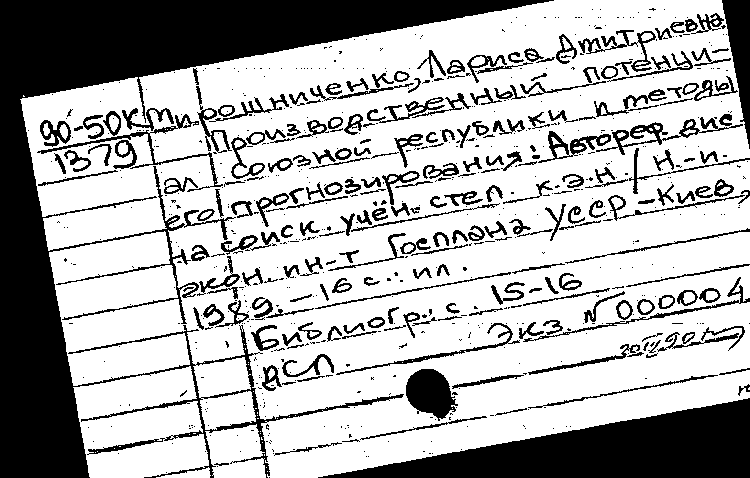 90-50К Мирошниченко, Лариса Дмитриевна
1379 Производственный потенци-
ал союзной республики и методы
его прогнозирования: Автореф. дис
на соиск. учён. степ. к.э.н / Н.-и.
экон. ин-т Госплана УССР.-Киев,
1989. - 16 с.: ил.
Библиогр.: с. 15-16
ДСП. Экз. №000004